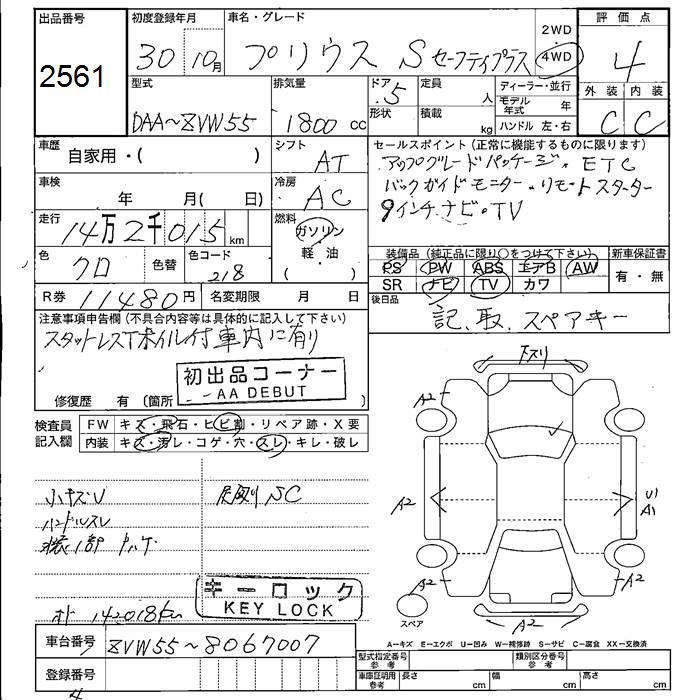 出品番号 初度登録年月 車名・グレード 2WD ・ 4WD 評価点
2561 30 10月 プリウス S セーフティプラス 4
型式 排気量 ドア 5 定員 人 ディーラー・並行 外装 内装
DAA〜ZVW55 1800 cc 形状 積載 kg モデル年式 年 C C
ハンドル 左・右
車歴 自家用・( ) シフト AT セールスポイント (正常に機能するものに限ります)
アップグレードパッケージ、ETC
車検 年 月( 日) 冷房 AC バックガイドモニター・リモートスターター
走行 14万2千015 km 燃料 ガソリン ・ 軽油 ( ) 9インチナビ・TV
装備品 (純正品に限り○をつけて下さい) 新車保証書
色 クロ 色替 色コード 218 PS PW ABS エアB AW 有・無
SR ナビ TV カワ
R券 11480円 名変期限 月 日 後日品 記、取、スペアキー
注意事項申告欄 (不具合内容等は具体的に記入して下さい)
スタットレスTホイル付車内に有り
初出品コーナー
AA DEBUT
修復歴 有 (箇所
検査員記入欄 FW キズ・飛石・ヒビ割・リペア跡・X要
内装 キズ・汚レ・コゲ・穴・スレ・キレ・破レ
小キズU SC
ハンドルスレ
キーロック
KEY LOCK
142018km
車台番号 ZVW55〜8067007
登録番号
下スリ
A2
A2
U1
A1
A2
A2
A2
スペア
A=キズ E=エクボ U=凹み W=補修跡 S=サビ C=腐食 XX=交換済
型式指定番号 参考 類別区分番号 参考
車庫証明用 参考 長さ cm 幅 cm 高さ cm